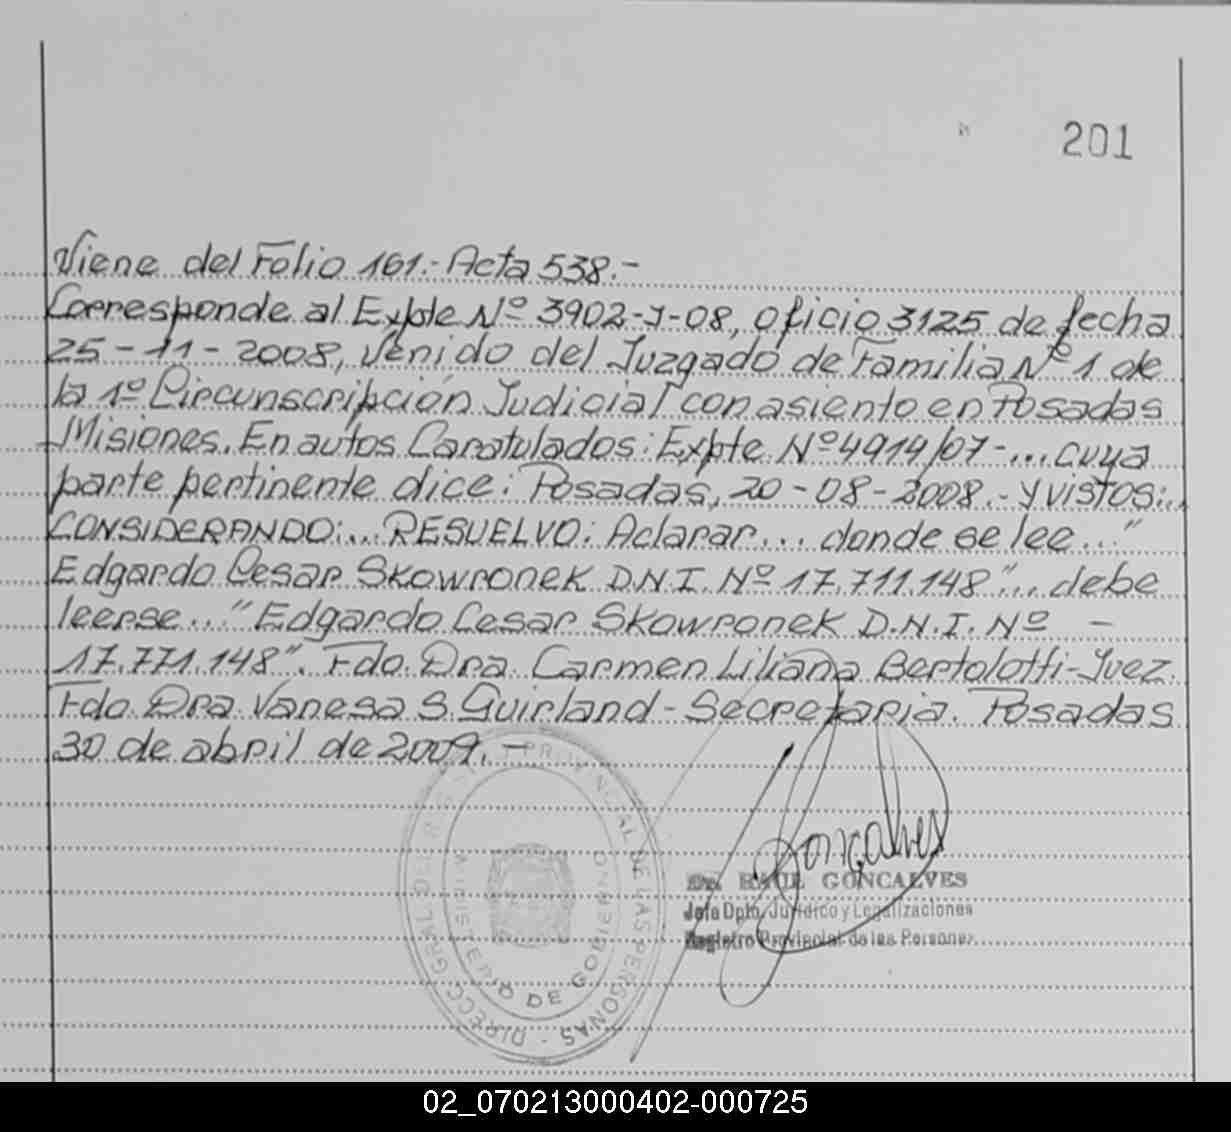 201
Viene del Folio 161.- Acta 538.-
Corresponde al Expte Nº 3902-J-08, oficio 3125 de fecha
25-11-2008, venido del Juzgado de Familia Nº 1 de
la 1º Circunscripción Judicial con asiento en Posadas
Misiones. En autos Caratulados: Expte Nº 4914/07-... cuya
parte pertinente dice: Posadas, 20-08-2008.- y vistos:..
CONSIDERANDO:... RESUELVO: Aclarar... donde se lee..."
Edgardo Cesar Skowronek D.N.I. Nº 17.711.148"... debe
leerse..."Edgardo Cesar Skowronek D.N.I. Nº -
17.771.148". Fdo. Dra. Carmen Liliana Bertolotti-Juez.
Fdo. Dra Vanesa S. Guirland - Secretaria. Posadas
30 de abril de 2009.-
Gonçalves
Dr. RAUL GONCALVES
Jefe Dpto. Jurídico y Legalizaciones
Registro Provincial de las Personas
DIRECC. GRAL. DEL REGISTRO PROVINCIAL DE LAS PERSONAS -
MINISTERIO DE GOBIERNO
02_070213000402-000725